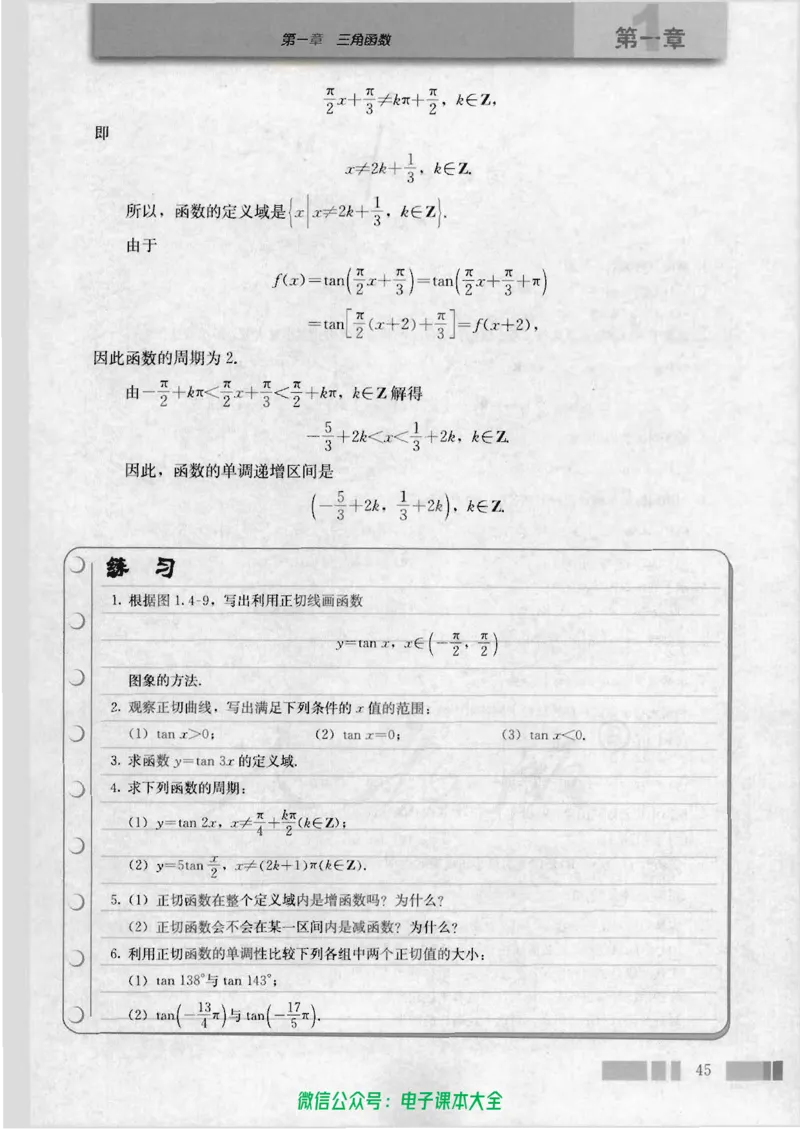 第一章 三角函数
第一章
π/2 x+π/3≠kπ+π/2, k∈Z,
即
x≠2k+1/3, k∈Z.
所以，函数的定义域是{x|x≠2k+1/3, k∈Z}.
由于
f(x)=tan(π/2 x+π/3)=tan(π/2 x+π/3+π)
=tan[π/2(x+2)+π/3]=f(x+2),
因此函数的周期为 2.
由-π/2+kπ<π/2 x+π/3<π/2+kπ, k∈Z 解得
-5/3+2k<x<1/3+2k, k∈Z.
因此，函数的单调递增区间是
(-5/3+2k, 1/3+2k), k∈Z.
练 习
1. 根据图 1.4-9，写出利用正切线画函数
y=tan x, x∈(-π/2, π/2)
图象的方法.
2. 观察正切曲线，写出满足下列条件的 x 值的范围：
(1) tan x>0; (2) tan x=0; (3) tan x<0.
3. 求函数 y=tan 3x 的定义域.
4. 求下列函数的周期：
(1) y=tan 2x, x≠π/4+kπ/2(k∈Z);
(2) y=5tan x/2, x≠(2k+1)π(k∈Z).
5. (1) 正切函数在整个定义域内是增函数吗？为什么？
(2) 正切函数会不会在某一区间内是减函数？为什么？
6. 利用正切函数的单调性比较下列各组中两个正切值的大小：
(1) tan 138°与 tan 143°;
(2) tan(-13/4 π)与 tan(-17/5 π).
45
微信公众号：电子课本大全